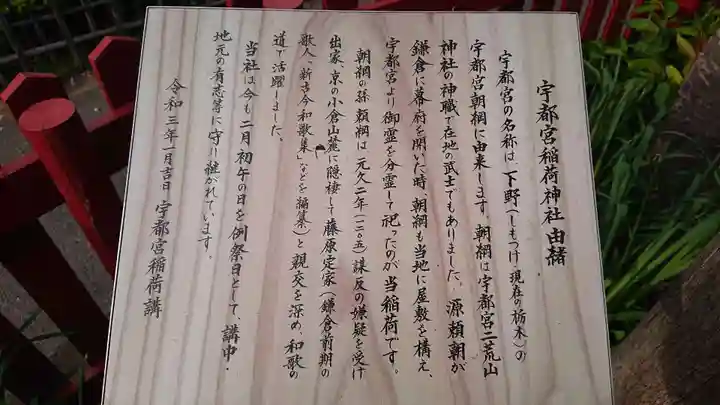 宇都宮稲荷神社 由緒
宇都宮の名称は、下野(しもつけ・現在の栃木)の
宇都宮朝綱に由来します。朝綱は宇都宮二荒山
神社の神職で在地の武士でもありました。源頼朝が
鎌倉に幕府を開いた時、朝綱も当地に屋敷を構え、
宇都宮より御霊を分霊して祀ったのが当稲荷です。
朝綱の孫頼綱は、元久二年(一二〇五)謀反の嫌疑を受け
出家、京の小倉山麓に隠棲して藤原定家(鎌倉前期の
歌人、「新古今和歌集」などを編纂)と親交を深め、和歌の
道で活躍しました。
当社は今も二月初午の日を例祭日として、講中・
地元の有志等に守り継がれています。
令和三年一月吉日 宇都宮稲荷講